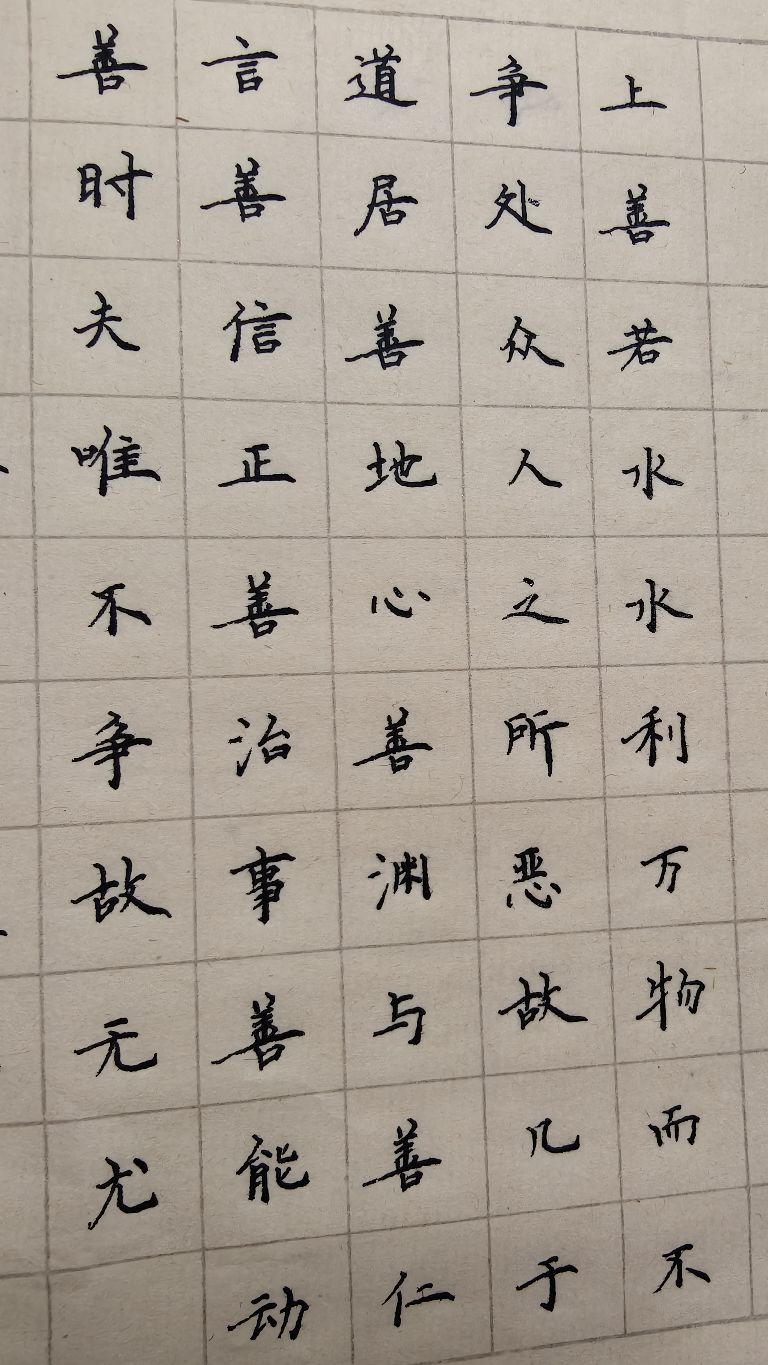 上善若水水利万物而不
争处众人之所恶故几于
道居善地心善渊与善仁
言善信正善治事善能动
善时夫唯不争故无尤